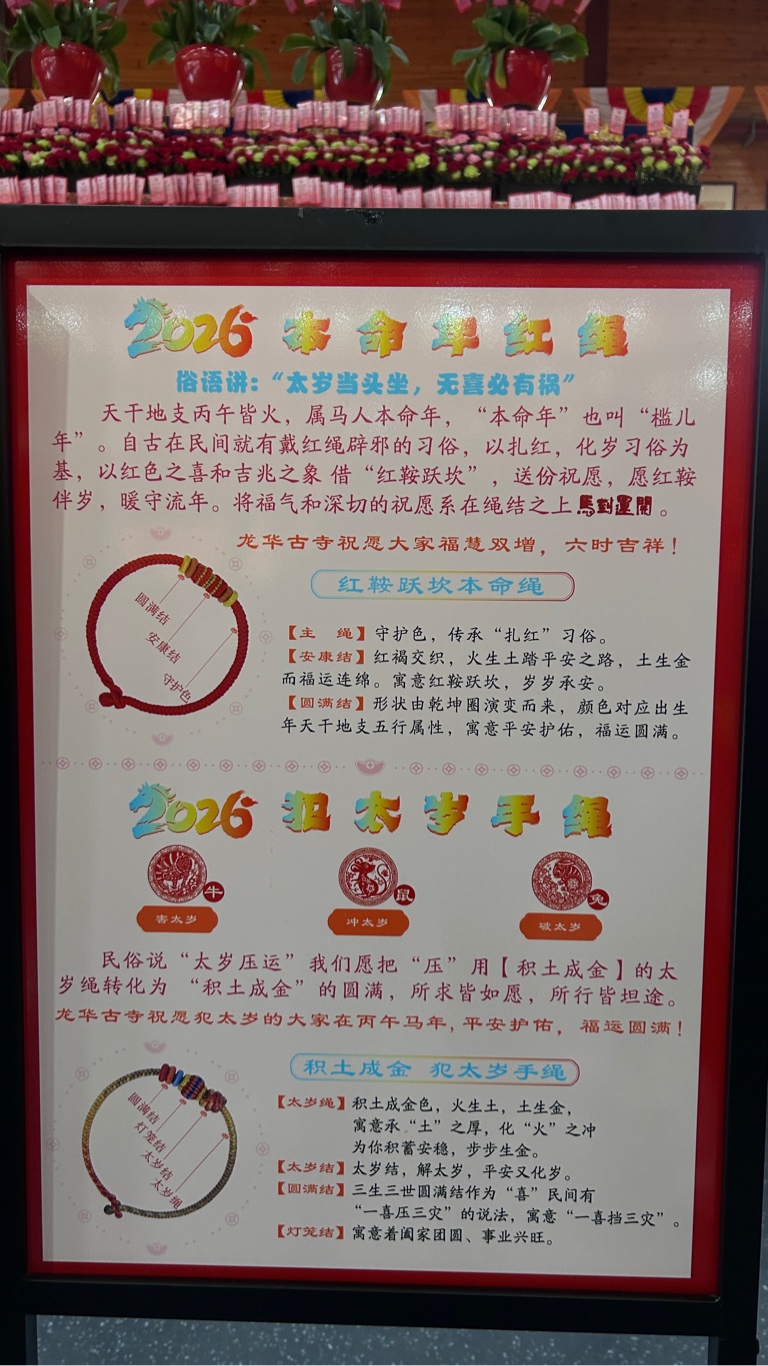 2026 本命年红绳
俗语讲：“太岁当头坐，无喜必有祸”
天干地支丙午皆火，属马人本命年，“本命年”也叫“槛儿
年”。自古在民间就有戴红绳辟邪的习俗，以扎红，化岁习俗为
基，以红色之喜和吉兆之象 借“红鞍跃坎”，送份祝愿，愿红鞍
伴岁，暖守流年。将福气和深切的祝愿系在绳结之上馬到運開。
龙华古寺祝愿大家福慧双增，六时吉祥！
圆满结
安康结
守护色
红鞍跃坎本命绳
【主 绳】守护色，传承“扎红”习俗。
【安康结】红褐交织，火生土踏平安之路，土生金
而福运连绵。寓意红鞍跃坎，岁岁承安。
【圆满结】形状由乾坤圈演变而来，颜色对应出生
年天干地支五行属性，寓意平安护佑，福运圆满。
2026 犯太岁手绳
牛
鼠
兔
害太岁
冲太岁
破太岁
民俗说“太岁压运”我们愿把“压”用【积土成金】的太
岁绳转化为 “积土成金”的圆满，所求皆如愿，所行皆坦途。
龙华古寺祝愿犯太岁的大家在丙午马年,平安护佑，福运圆满！
圆满结
灯笼结
太岁结
太岁绳
积土成金 犯太岁手绳
【太岁绳】积土成金色，火生土，土生金，
寓意承“土”之厚，化“火”之冲
为你积蓄安稳，步步生金。
【太岁结】太岁结，解太岁，平安又化岁。
【圆满结】三生三世圆满结作为“喜”民间有
“一喜压三灾”的说法，寓意“一喜挡三灾”。
【灯笼结】寓意着阖家团圆、事业兴旺。